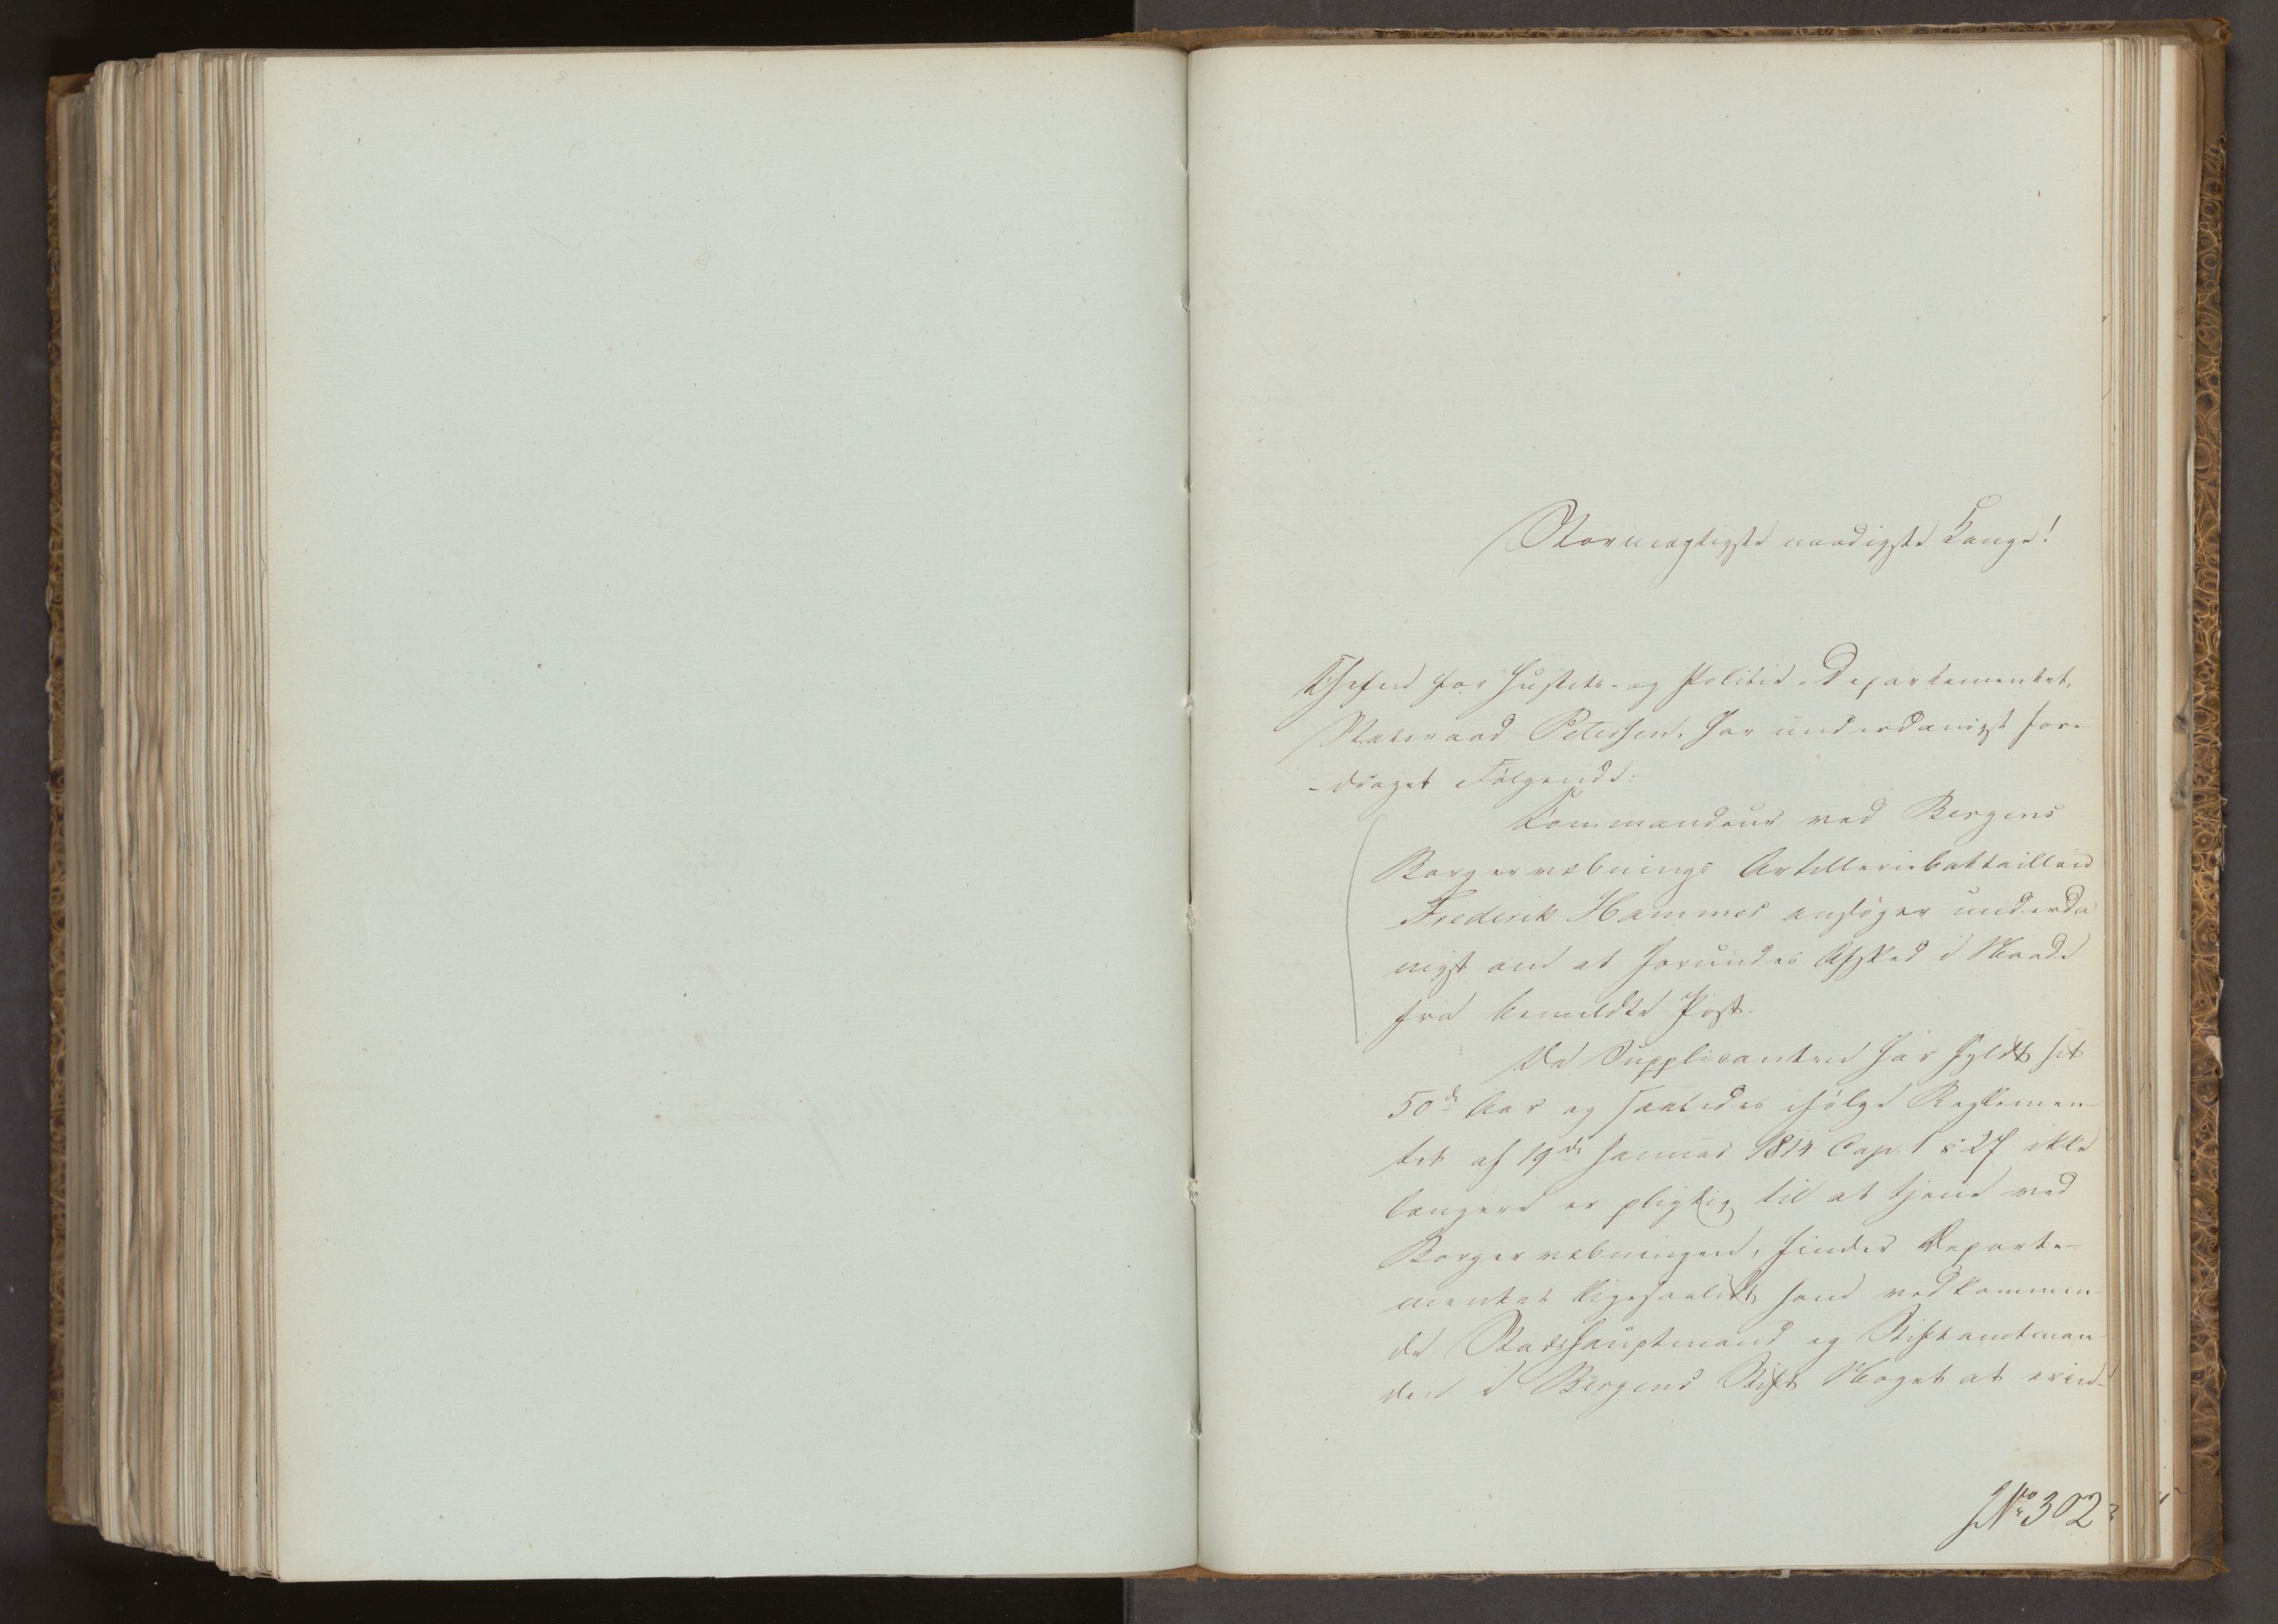 Stormægtigste naadigste Konge!
Chefen for Justits- og Politie-Departementet,
Statsraad Petersen, har underdanigst fore-
-draget Følgende:
Kommandeur ved Bergens
Borgervæbnings Artilleriebattaillon
Frederik Hammer ansøger underda
nigst om at forundes Afsked i Naade
fra bemeldte Post.
Da Supplicanten har fyldt sit
50de Aar og saaledes ifølge Reglemen-
tet af 19de Januar 1814 Cap. 1 § 27 ikke
længere er pligtig til at tjene ved
Borgervæbningen, finder Departe-
mentet ligesaalidt som vedkommen-
de Stadshauptmand og Stiftamtman
den i Bergens Stift Noget at erind-
No 302